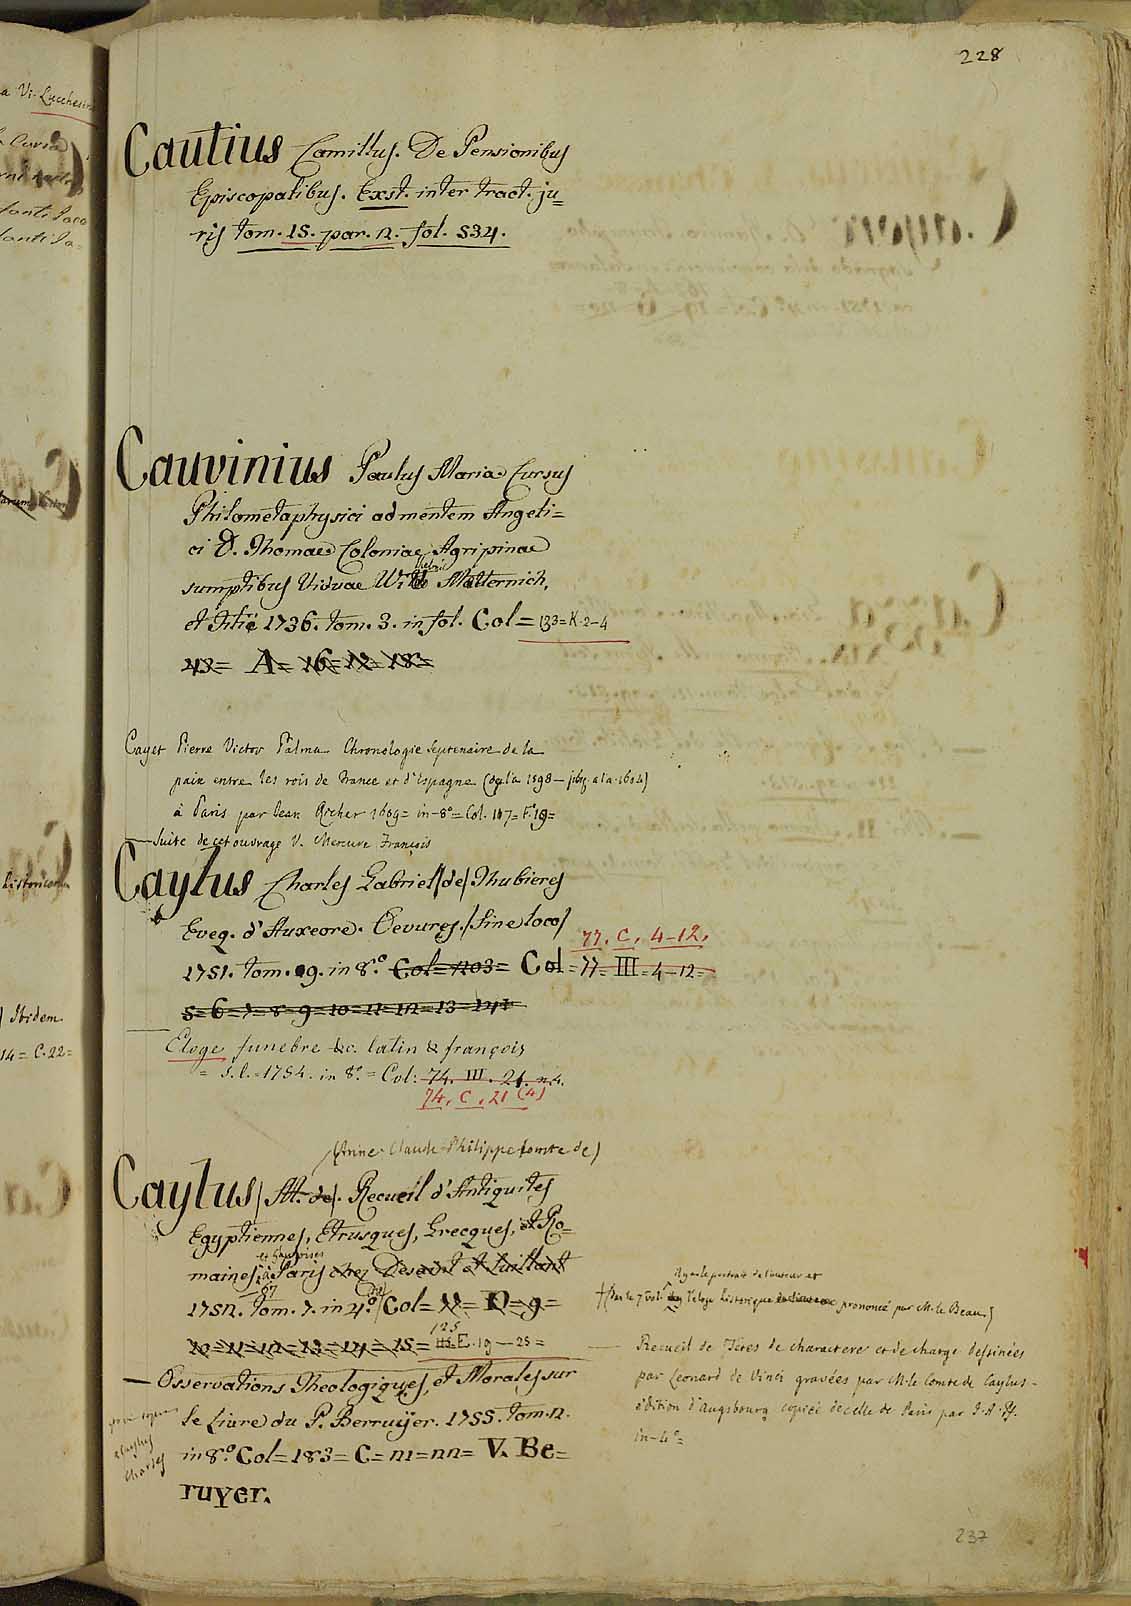 228
a Vi. Lucchesin
Cautius Camillus. De Pensionibus
Episcopatibus. Exst. inter tract. ju=
ris tom. 15. par. 2. fol. 534.
Cauvinius Paulus Maria Cursus
Philometaphysici ad mentem Angeli=
ci D. Thomae Coloniae Agripinae
sumptibus Viduae Metternich,
et Filii 1736. tom. 3. in fol. Col= 133=K.2-4
43= A= 16=17= 18=
Cayet Pierre Victor Palma Chronologie Septenaire de la
paix entre les rois de France et d'Espagne (de l'a 1598 - a la 1604)
à Paris par Jean Richer 1609= in-8°= Col. 117= F.19=
— Suite de cet ouvrage V. Mercure François
Caylus Charles Gabriel (de) Thubieres
Eveq. d'Auxeore. Oevures. (sine loco)
77. C. 4-12.
1751. tom. 9. in 8.° Col= 1203= Col= 77= III= 4-12=
5=6=7=8=9=10=11=12=13=14
— Eloge funebre &c. latin & françois
= s.l.=1754. in 8°.= Col: 74. III. 21. n.4.
74. C. 21 (4)
(Anne Claude Philippe Comte de)
Caylus (M. de). Recueil d'Antiquites
Egyptiennes, Etrusques, Grecques, et Ro=
et Gauloises
maines, à Paris chez Desaint et Saillant
-67
1752. tom. 7. in 4.° Col= D= 9=
125
10=11=12=13=14=15= E.19—25=
— Osservations Theologiques, et Morales sur
le livre du P. Berruijer. 1755. tom. 2.
in 8.° Col= 183= C= 21=22= V. Be=
ruyer.
a Caylus
Charles
Il y a le portrait de l'auteur et
+ (Dans le 7 vol. l'eloge historique prononcé par M. le Beau)
— Recueil de Têtes de charactere et de charge dessinées
par Leonard de Vinci gravées par M. le Comte de Caylus -
édition d'Augsbourg copiée de celle de Paris par
in-4°=
Ibidem
14= C.22=
237